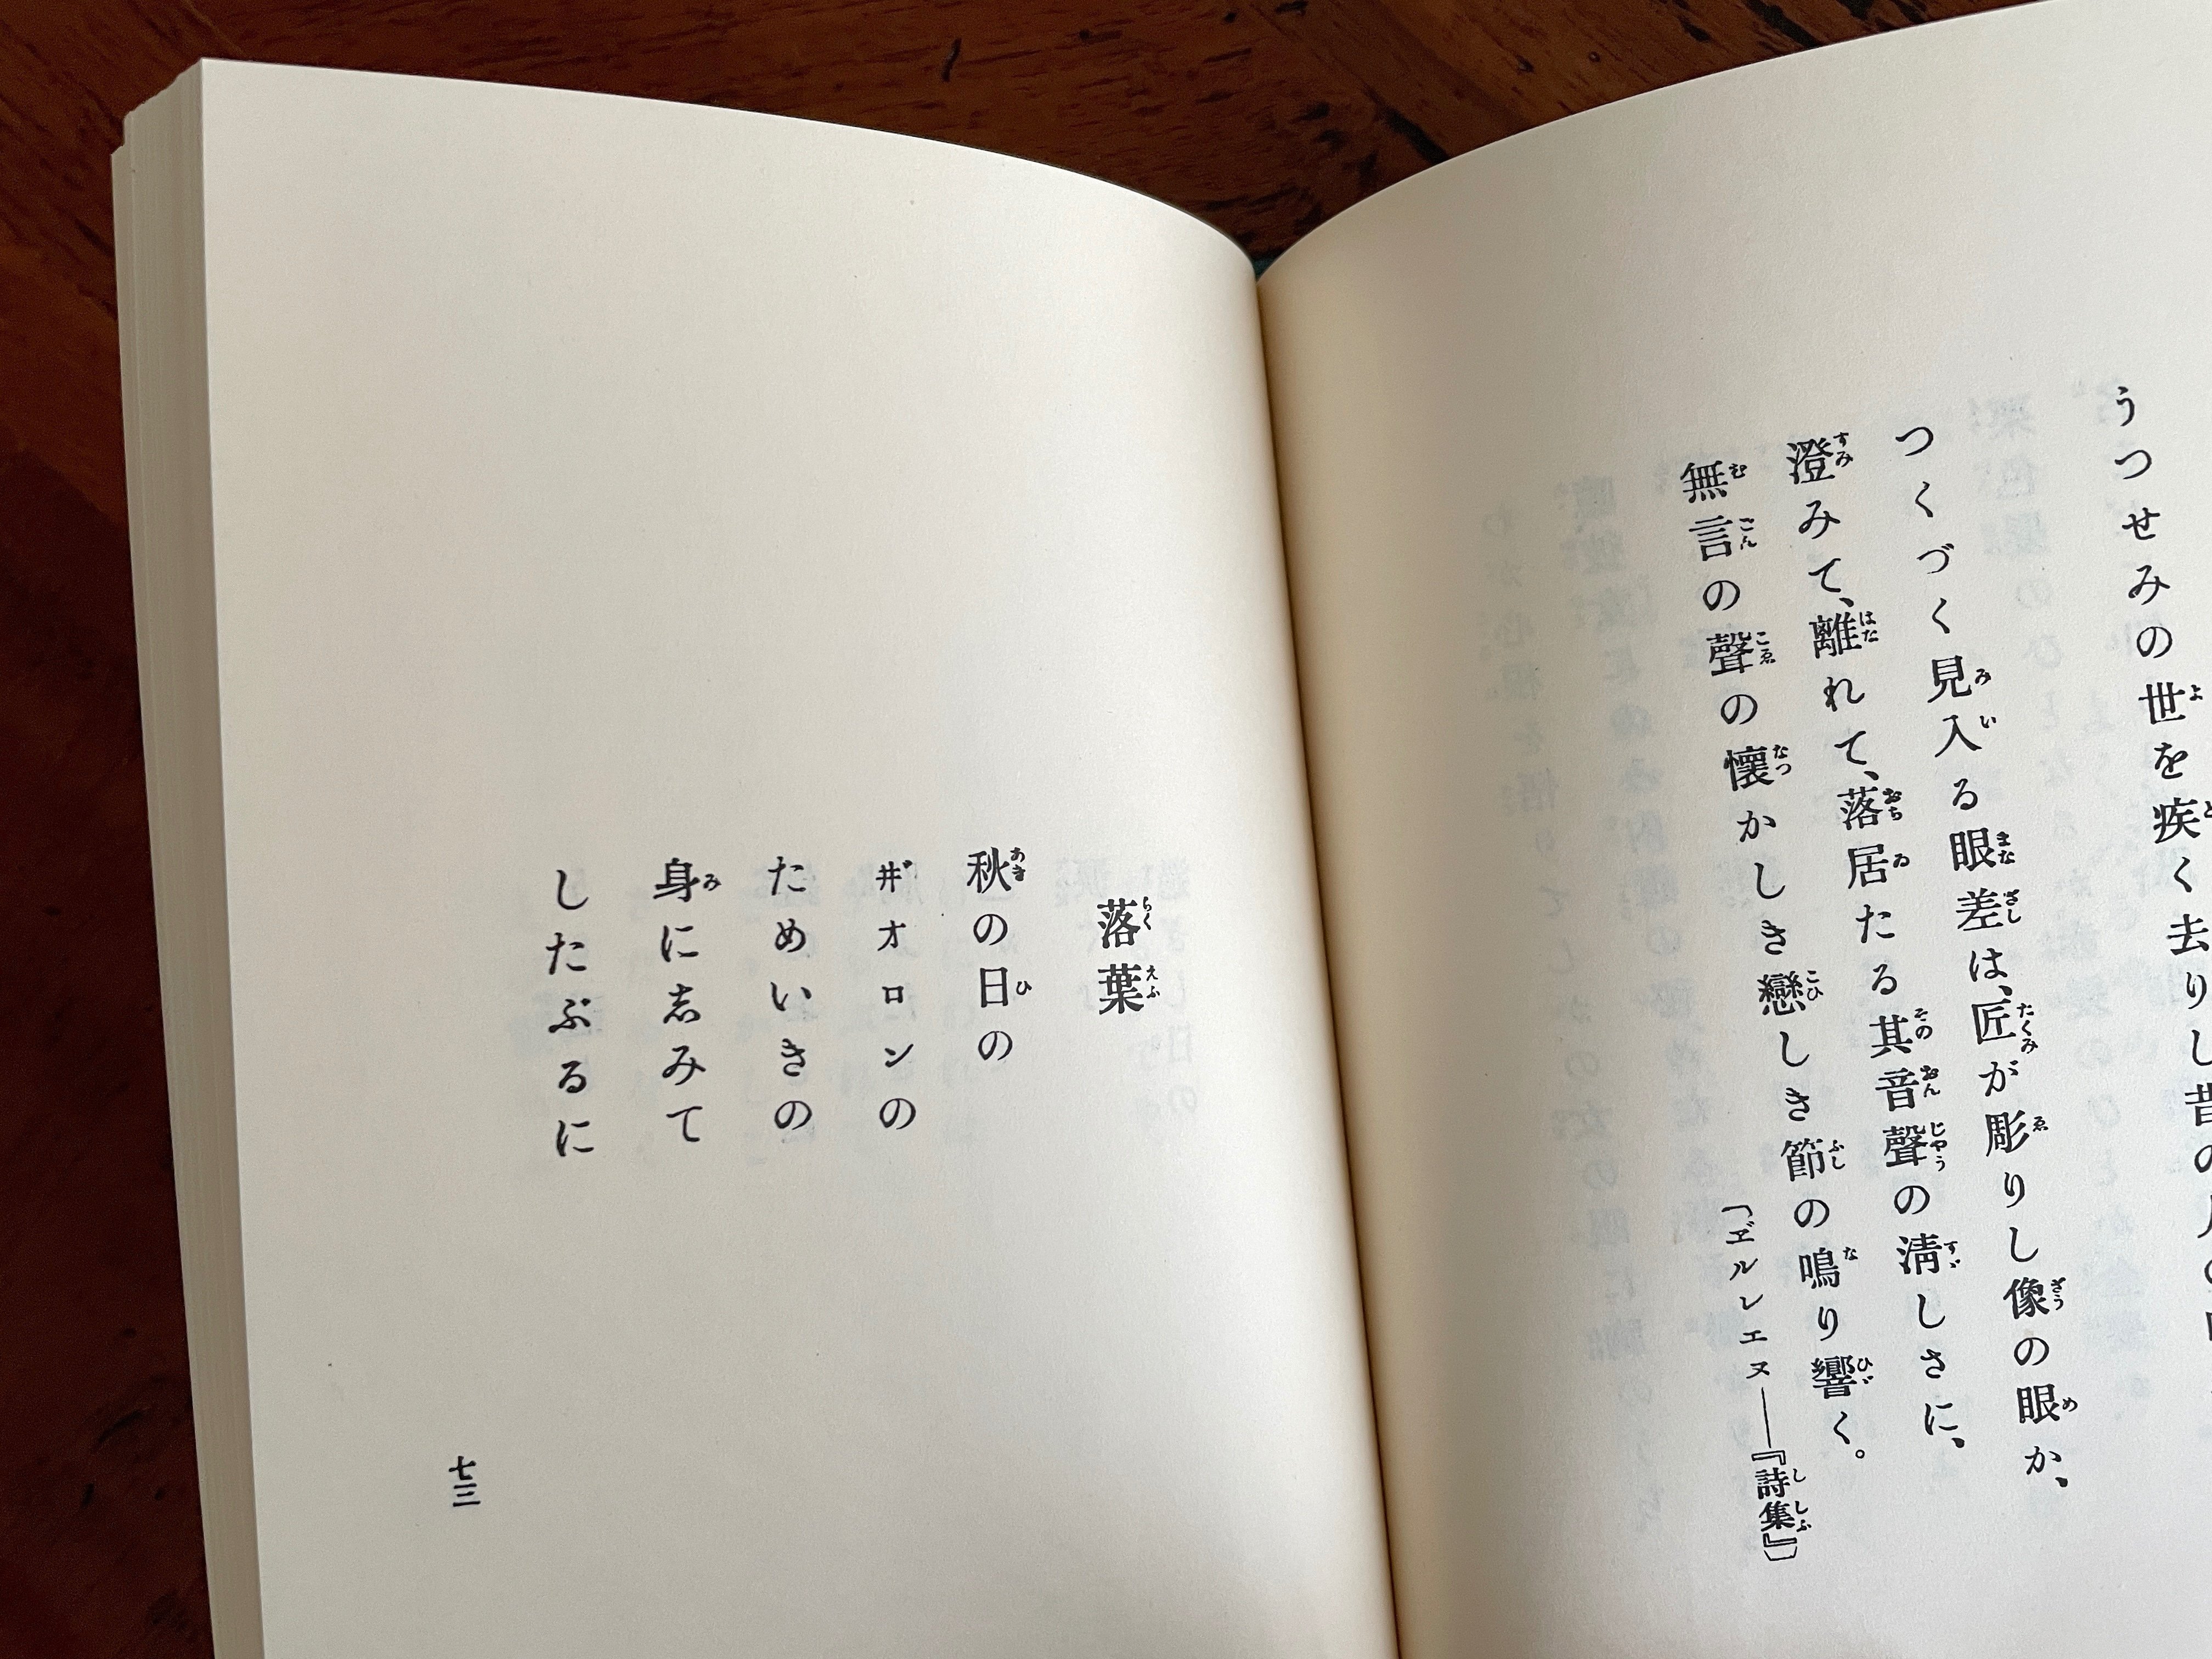 うつせみの世を疾く去りし昔の
つくづく見入る眼差は、匠が彫りし像の眼か、
澄みて、離れて、落居たる其音聲の淸しさに、
無言の聲の懷かしき戀しき節の鳴り響く。
〔ヹルレエヌ――『詩集』〕
落葉
秋の日の
ヸオロンの
ためいきの
身に志みて
したぶるに
七三